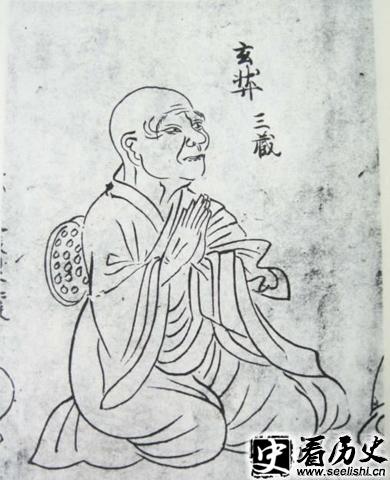 玄奘
三藏
史看历史
www.seelishi.cn